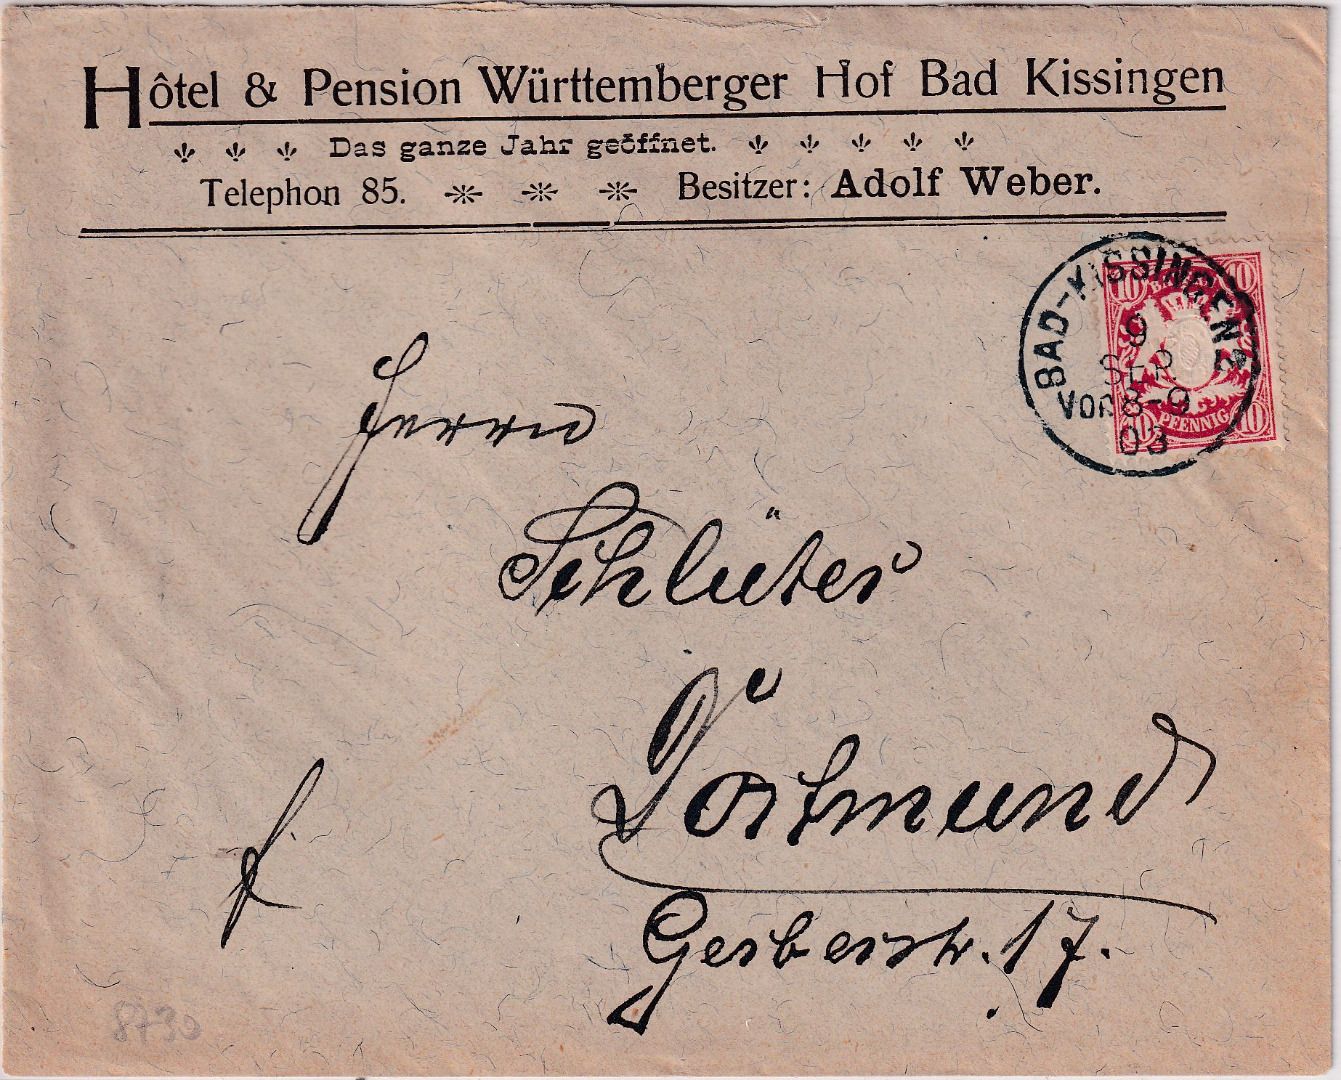 Hôtel & Pension Württemberger Hof Bad Kissingen
Das ganze Jahr geöffnet.
Telephon 85. Besitzer: Adolf Weber.
BAD-KISSINGEN 2
9
SEP.
VOR 8-9
03
10 10
10 10
PFENNIG
Herrn
Schlüter
Dortmund
Gerberstr. 17.
8730